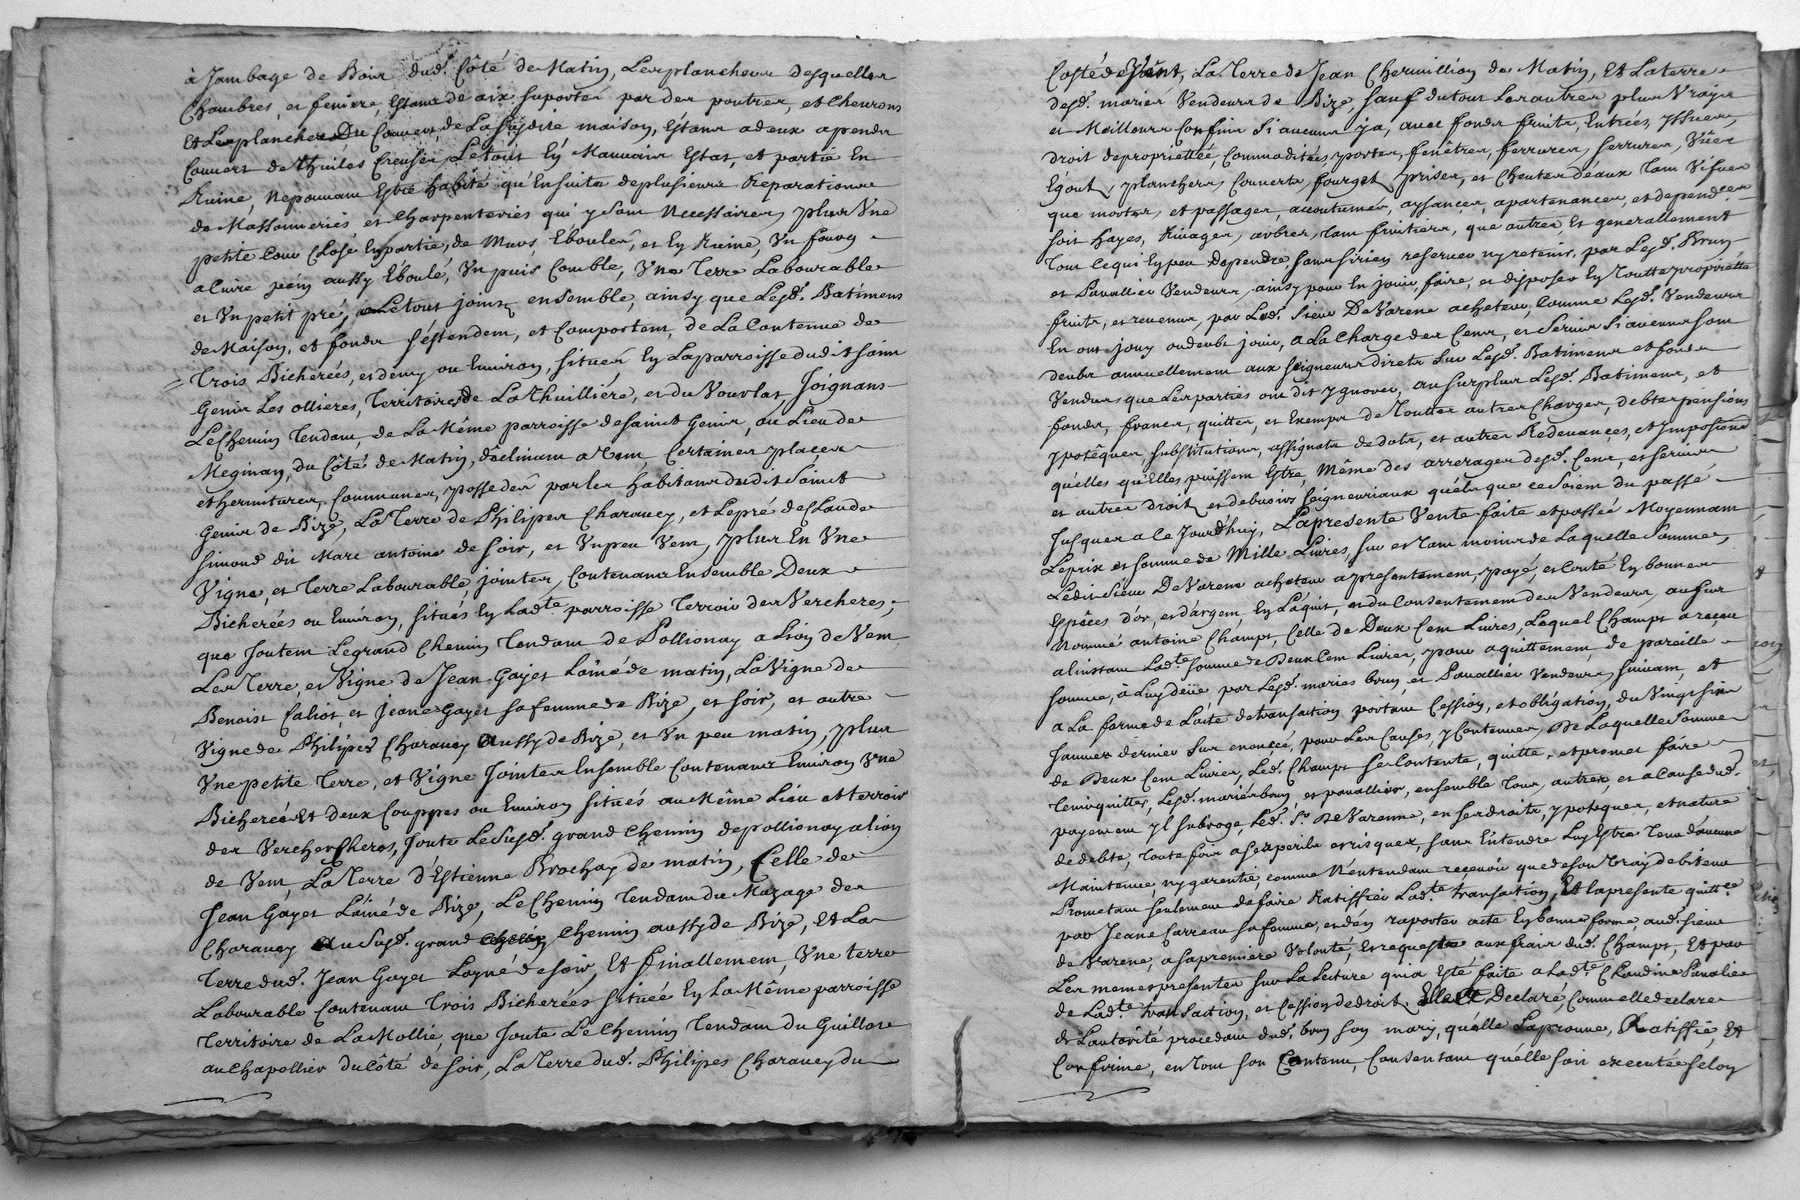 à Jambage de Bois dud. Côté de Matin, Les planchers desquelles
Chambres et feniere, Estans de aix suportés par des poutres, et Chevrons
Et Les planches Du Couvert, de La susditte maison, Estans a deux apends
Couvers de thuiles Creuses, Le tout En Mauvais Estat, et partie En
Ruine, ne pouvans Estre habité qu'Ensuite de plusieurs Reparations
de Massonneries et charpenteries qui y Sont Necessaires, plus Une
petite Cour Close En partie, de Murs Eboulés, et En Ruine, Un fourg
a Cuire pain aussy Eboulé, Un puis Comblé, Une Terre Labourable
et Un petit pré, Le tout joins ensemble, ainsy que Lesd. Batimens
de Maison, et fonds s'éstendent, et Comportent, de La Contenue de
Trois Bicherées, et demy ou Environ, situés En La parroisse dudit saint
Genis Les ollieres, Territoires de La Thuilliere, et du Vourlat, Joignans
Le Chemin Tendant, de La Même parroisse de saint Genis, au Lieu de
Meginan, du Côté de Matin, déclinant a vent Certaines places
et hermitures, Communes, possedés par les habitans dudit Saint
Genis de Bize, La Terre de Philipes Charavey, et Le pré de Claude
Simond dit Marc antoine de soir, et Un peu Vent, plus En Une
Vigne, et Terre Labourable, jointes, Contenans Ensemble Deux
Bicherées ou Environ, situés En Ladte. parroisse Terroir des Vercheres,
que Joutent Le grand Chemin Tendant de Pollionay a Lion de Vent
Les Terre, et Vigne de Jean Gayet L'aîné de matin, La Vigne de
Benoist Caliot, et Jeane Gayet sa femme de Bize, et soir, et autre
Vigne de Philipes Charavey Aussy de Bize, et Un peu matin, plus
Une petite Terre, et Vigne Jointes Ensemble Contenans Environ Une
Bicherée Et deux Couppes ou Environ situés au Même Lieu et terroir
des Vercheres, Joute Le Susd. grand Chemin de pollionay a lion
de Vent, La Terre d'Estienne Brochay de matin, Celle de
Jean Gayet L'ainé de Bize, Le Chemin Tendant du Mazage des
Charavey Au Susd. grand Chemin aussy de Bize, Et La
Terre dud. Jean Gayet Layné de soir, Et finallement, Une terre
Labourable Contenant Trois Bicherées située En La Même parroisse
Territoire de La Mollie, que Joute Le Chemin Tendant du Guillot
au Chapollier du Côté de soir, La Terre dud. Philipes Charavey du
Costé de Vent, La Terre de Jean Chermillion de Matin, Et La terre
desd. mariés Vendeurs de Bize, sauf du tout Les autres plus Vrays
et Meilleurs Confins si aucuns y a, avec fonds fruits, Entrées, yssues,
droit de propriettée, Commoditées, portes, fenêtres, ferrures, serrures, Vûes
Egout, planchers, Couverts fourget, prises, et Cheutes d'eaux Tant Vifues
que mortes, et passages, acoutumés, aysances, apartenances, et dependces.
soit hayes, Rivages, arbres, Tant fruitiers, que autres, Et generallement
Tout Ce qui En peu Dependre, sans si rien reserver ny retenir, par Lesd. Brun
et Pavallier Vendeurs, ainsy pour En jouir, faire, et disposer En Toutte proprietté
fruits, et revenus, par Led. sieur De Varene acheteur, Comme Lesd. Vendeurs
En ont jouy ou deub jouir, a La Charge des Cens, et Servis si aucuns sont
deubs annuellement aux seigneurs directs sur Lesd. Batimens et fonds
Vendus que Les parties ont dit ygnorer, au surplus Lesd. Batimens, et
fonds, francs, quittes, et Exempts de Touttes autres Charges, debtes pensions
ypotêques substitutions, assignats de dots, et autres Redevances, et Impositions
qu'elles qu'Elles puissent Estre, Même des arrerages desd. Cens, et servis
et autres droits et debvoirs seigneuriaux quéls que ce soient du passé
Jusques a Ce Jourd'huy, La presente Vente faite et passée Moyennant
Le prix et somme de Mille Livres, sur et Tant moins de Laquelle Somme,
Ledit sieur De Varene acheteur a presentement, payé, et Conté En bonnes
Espéces d'or, et d'argent, En L'aquit, et du Consentement des Vendeurs, au sieur
Nommé antoine Champt, Celle de Deux Cent Livres, Lequel Champt a reçeu
a l'instant Ladte. somme de Deux Cent Livres, pour aquittement, de pareille
somme, à Luy deüe, par Lesd. mariés brun, et Pavallier Vendeurs suivant, et
a La forme de L'acte de transaction portant Cession, et obligation, du Vingt six
Janvier dernier sus enoncée, pour Les Causes, y Contenues, De Laquelle Somme
de Deux Cent Livres, Led. Champt se Contente, quitte, et promet faire
Tenir quittes, Lesd. mariés brun, et pavallier, ensemble Tous, autres, et a Cause dud.
payement yl subroge, Led. Sr. De Varenne, en ses droits, ypoteques, et nature
de debte, Toutefois a ses perils et risques, sans L'entendre Luy Estre Tenu d'aucune
Maintenue, ny garentie, comme N'entendant recevoir que de son Vray debiteur
Prometant seulement de faire Ratiffier Ladte. transaction, Et la presente quittce.
par Jeane Carreau sa femme, et d'en raporter acte En bonne forme, aud. sieur
de Varene, a sa premiere Volonté, Et requeste aux frais dud. Champt, Et par
Les memes presentes sur La Lecture qui a Esté faite a Ladte. Claudine Pavallier
de Ladte. transaction, et Cession de droit, Elle a Declaré, Comme elle declare
de L'autorité procedant dud. brun son mary, qu'elle L'aprouve, Ratiffie, Et
Confirme, en tout son Contenu, Consentant qu'elle soit executée selon